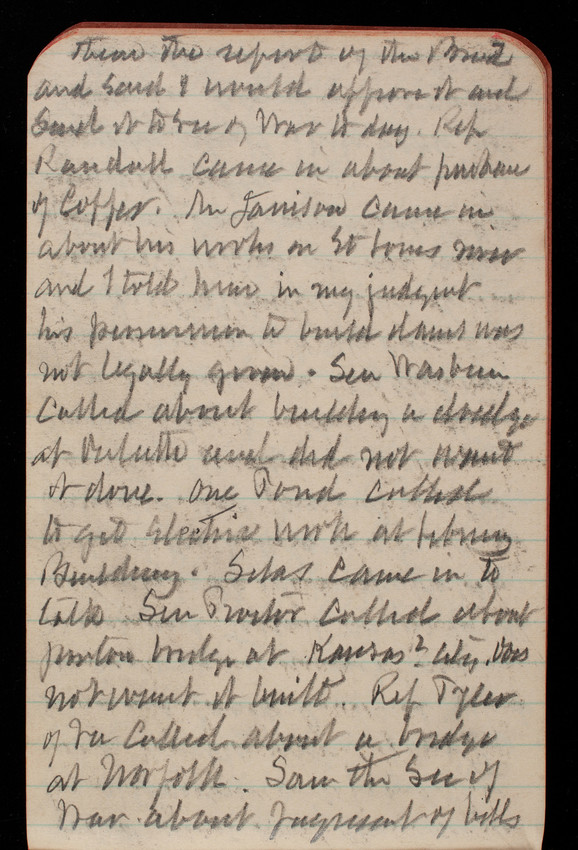 them the report of the Board
and said I would approve it and
send it to Sec of War to day. Rep
Randall came in about purchase
of Coffer. Mr Janison came in
about his works on St Louis river
and I told him in my judgment
his permission to build dams was
not legally given. Sen Wasburn
called about building a dredge
at Duluth and did not want
it done. One Pond called
to get Electric work at
Building. Silas came in to
talk Sen Proctor called about
ponton bridge at Kansas City. Does
not want it built. Rep Tyler
of Va called about a bridge
at Norfolk. Saw the Sec of
War about of bills